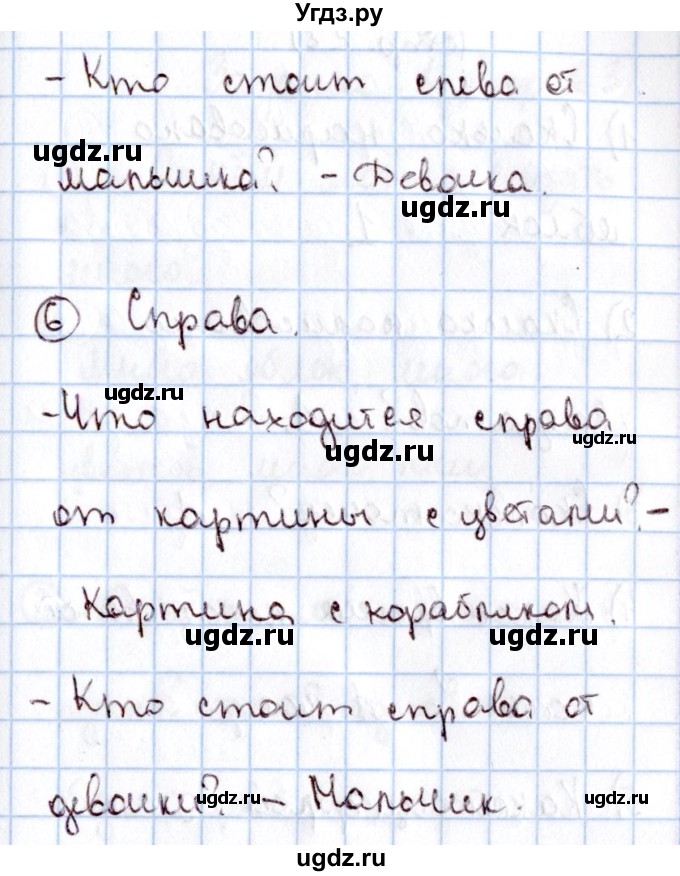 Угдз.ру
- Кто стоит слева от
ugdz.ru
мальчика? - Девочка.
ugdz.ru
⑥ Справа.
ugdz.ru
- Что находится справа
ugdz.ru
ugdz.ru
от картины с цветами? -
Картина с корабликом.
ugdz.ru
ugdz.ru
- Кто стоит справа от
ugdz.ru
девочки? - Мальчик.
ugdz.ru
ugdz.ru
ugdz.ru